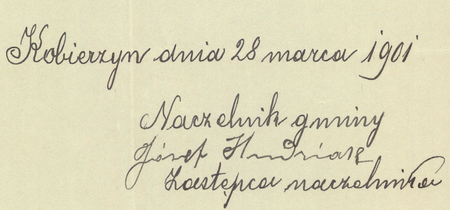 Kobierzyn dnia 28 marca 1901
Naczelnik gminy
Józef
Zastępca naczelnika